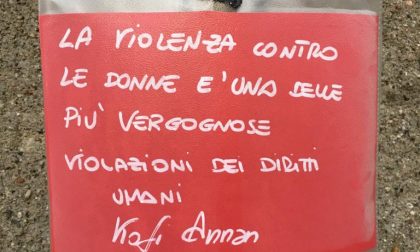 LA VIOLENZA CONTRO
LE DONNE E' UNA DELLE
PIU' VERGOGNOSE
VIOLAZIONI DEI DIRITTI
UMANI
Kofi Annan